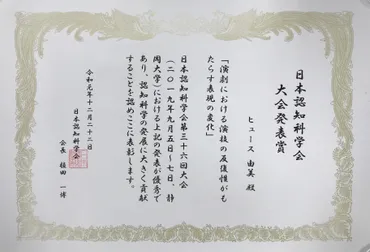 日本認知科学会
大会発表賞
ヒュース 由美 殿
「演劇における演技の反復性がも
たらす表現の変化」
日本認知科学会第三十六回大会
(二〇一九年九月五日~七日、静
岡大学)における上記の発表が優秀で
あり、認知科学の発展に大きく貢献
することを認めここに表彰します。
令和元年十二月二十二日
日本認知科学会
会長 植田 一博